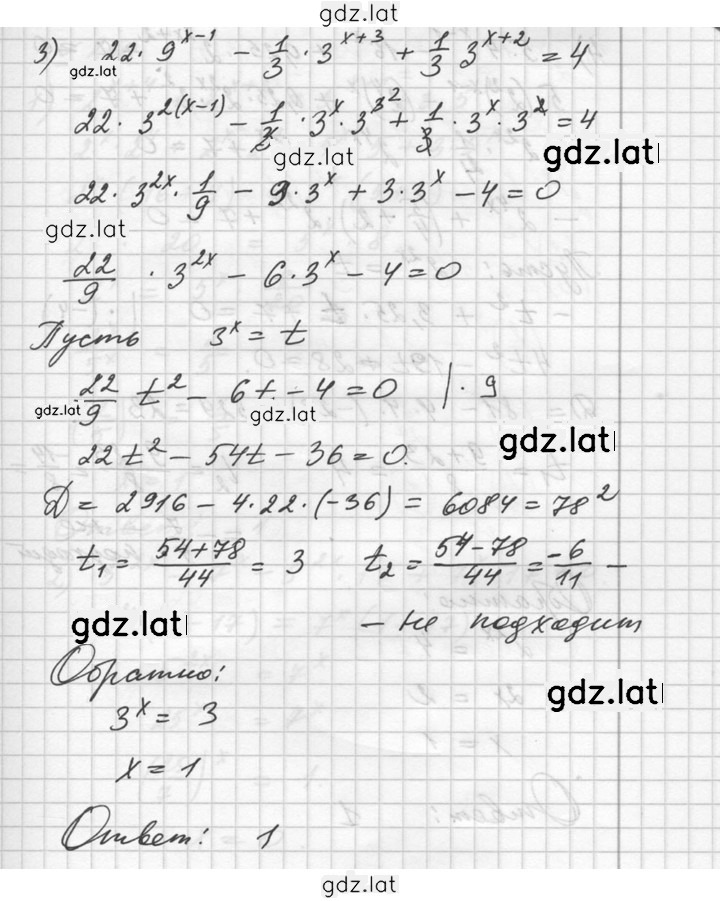 gdz.lat
3) 22 · 9^{x-1} - \frac{1}{3} · 3^{x+3} + \frac{1}{3} 3^{x+2} = 4
gdz.lat
22 · 3^{2(x-1)} - \frac{1}{3} · 3^x · 3^{3^2} + \frac{1}{3} · 3^x · 3^2 = 4
gdz.lat gdz.lat
22 · 3^{2x} · \frac{1}{9} - 9 · 3^x + 3 · 3^x - 4 = 0
gdz.lat
\frac{22}{9} · 3^{2x} - 6 · 3^x - 4 = 0
Пусть 3^x = t
\frac{22}{9} t^2 - 6t - 4 = 0 | · 9
gdz.lat gdz.lat
gdz.lat
22t^2 - 54t - 36 = 0.
D = 2916 - 4 · 22 · (-36) = 6084 = 78^2
t_1 = \frac{54+78}{44} = 3 t_2 = \frac{54-78}{44} = \frac{-6}{11} -
gdz.lat - не подходит
Обратно:
gdz.lat
3^x = 3
x = 1
Ответ: 1
gdz.lat